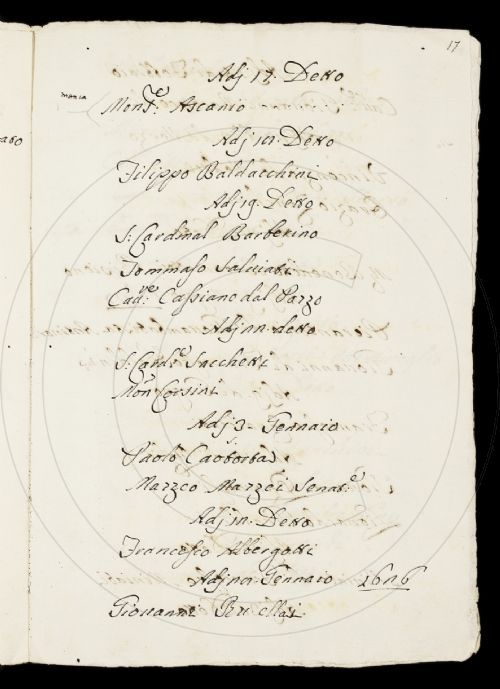 17
Adj 17. Detto
Mon.re Ascanio
Adj Detto
Filippo Baldacchini
Adj 19. Detto
S. Cardinal Barberino
Tommaso Salviati
Cau.re Cassiano dal Pozzo
Adj detto
S. Card.e Sacchetti
Mon. Corsini
Adj 3. Gennaio
Paolo
Marzeo Marzei Senat.e
Adj Detto
Francesco Albergotti
Adj Gennaio 1626
Giovanni Rucellai